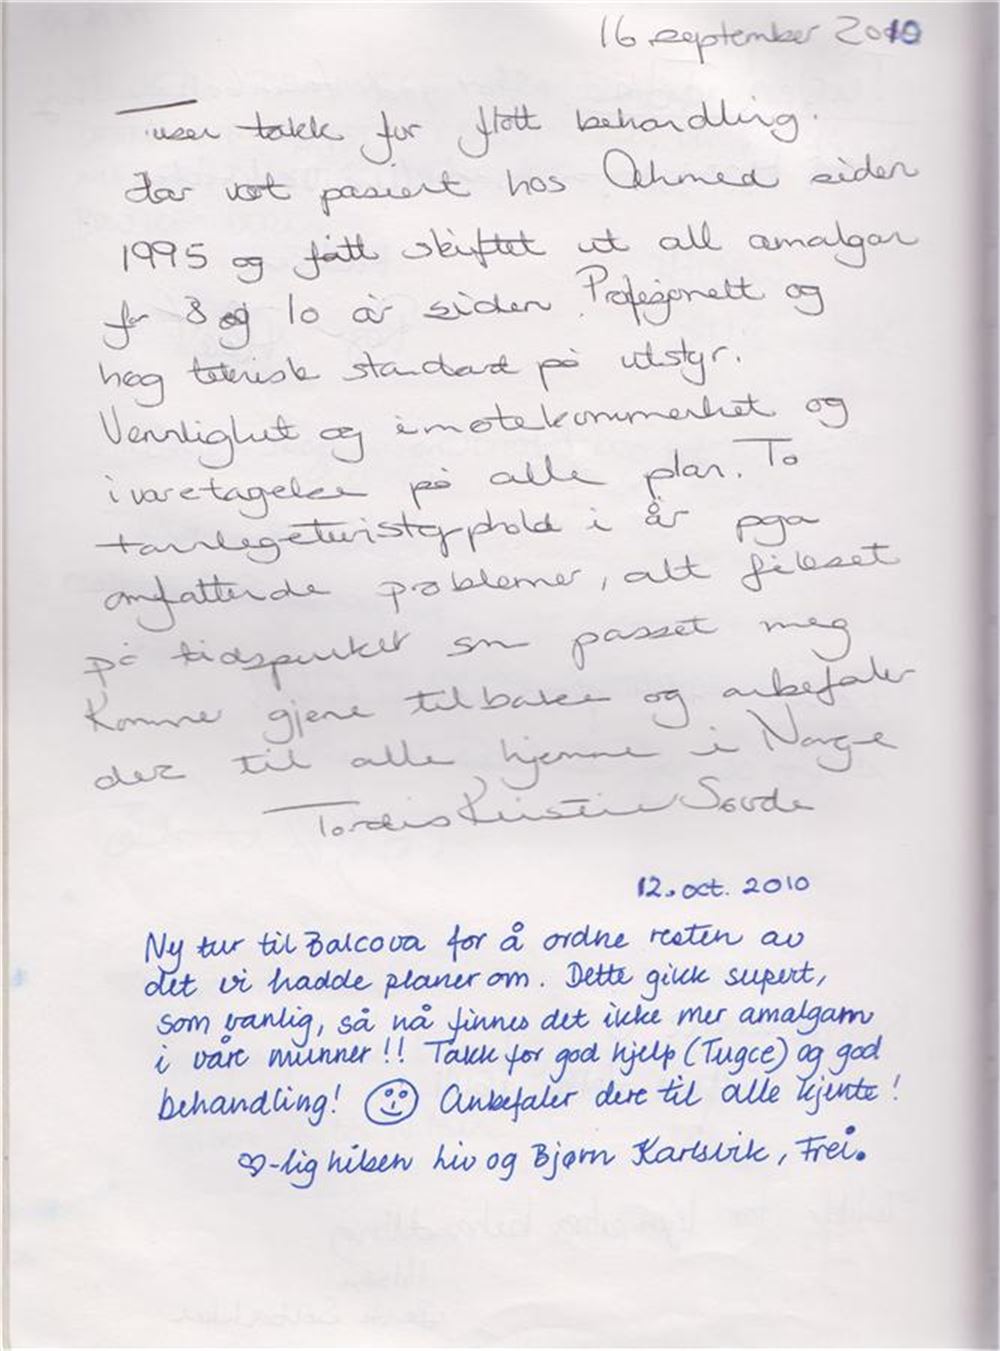 16 september 2010
Tusen takk for flott behandling.
Har vært pasient hos Ahmed siden
1995 og fått skiftet ut all amalgam
for 8 og 10 år siden. Profesjonelt og
høg teknisk standard på utstyr.
Vennlighet og imøtekommenhet og
ivaretagelse på alle plan. To
tannlegeturistopphold i år pga
omfattende problemer, alt fikset
på tidspunkt som passet meg
Kommer gjerne tilbake og anbefaler
dere til alle hjemme i Norge
Tordis Kristin Søvde
12. oct. 2010
Ny tur til Balcova for å ordne resten av
det vi hadde planer om. Dette gikk supert,
som vanlig, så nå finnes det ikke mer amalgam
i våre munner!! Takk for god hjelp (Tugce) og god
behandling! Anbefaler dere til alle kjente!
♡-lig hilsen Liv og Bjørn Karlsvik, Frei.